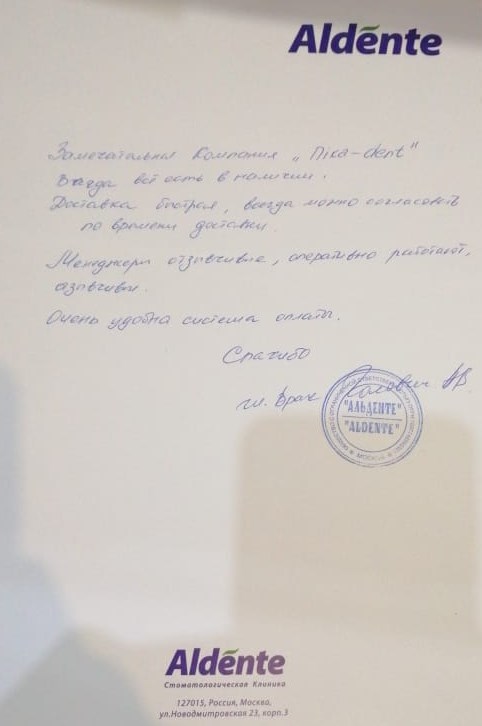 Aldente
Замечательная компания „Пika-dent"
Всегда всё есть в наличии.
Доставка быстрая, всегда можно согласовать
по времени доставки.
Менеджеры отзывчивые, оперативно работают,
Очень удобна система оплаты.
Спасибо
гл. врач
"АЛЬДЕНТЕ"
"ALDENTE"
МОСКВА
Aldente
Стоматологическая Клиника
127015, Россия, Москва,
ул.Новодмитровская 23, корп.3